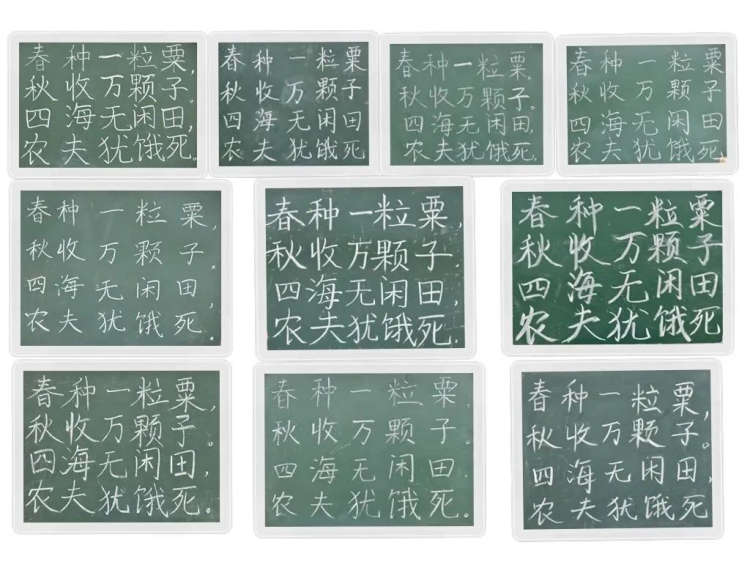 春种一粒粟,
秋收万颗子。
四海无闲田,
农夫犹饿死。
春种一粒粟
秋收万颗子
四海无闲田
农夫犹饿死
春种一粒粟,
秋收万颗子。
四海无闲田,
农夫犹饿死。
春种一粒粟
秋收万颗子
四海无闲田
农夫犹饿死
春种一粒粟,
秋收万颗子。
四海无闲田,
农夫犹饿死。
春种一粒粟,
秋收万颗子
四海无闲田,
农夫犹饿死。
春种一粒粟
秋收万颗子
四海无闲田
农夫犹饿死
春种一粒粟,
秋收万颗子。
四海无闲田,
农夫犹饿死。
春种一粒粟,
秋收万颗子。
四海无闲田,
农夫犹饿死。
春种一粒粟,
秋收万颗子。
四海无闲田,
农夫犹饿死